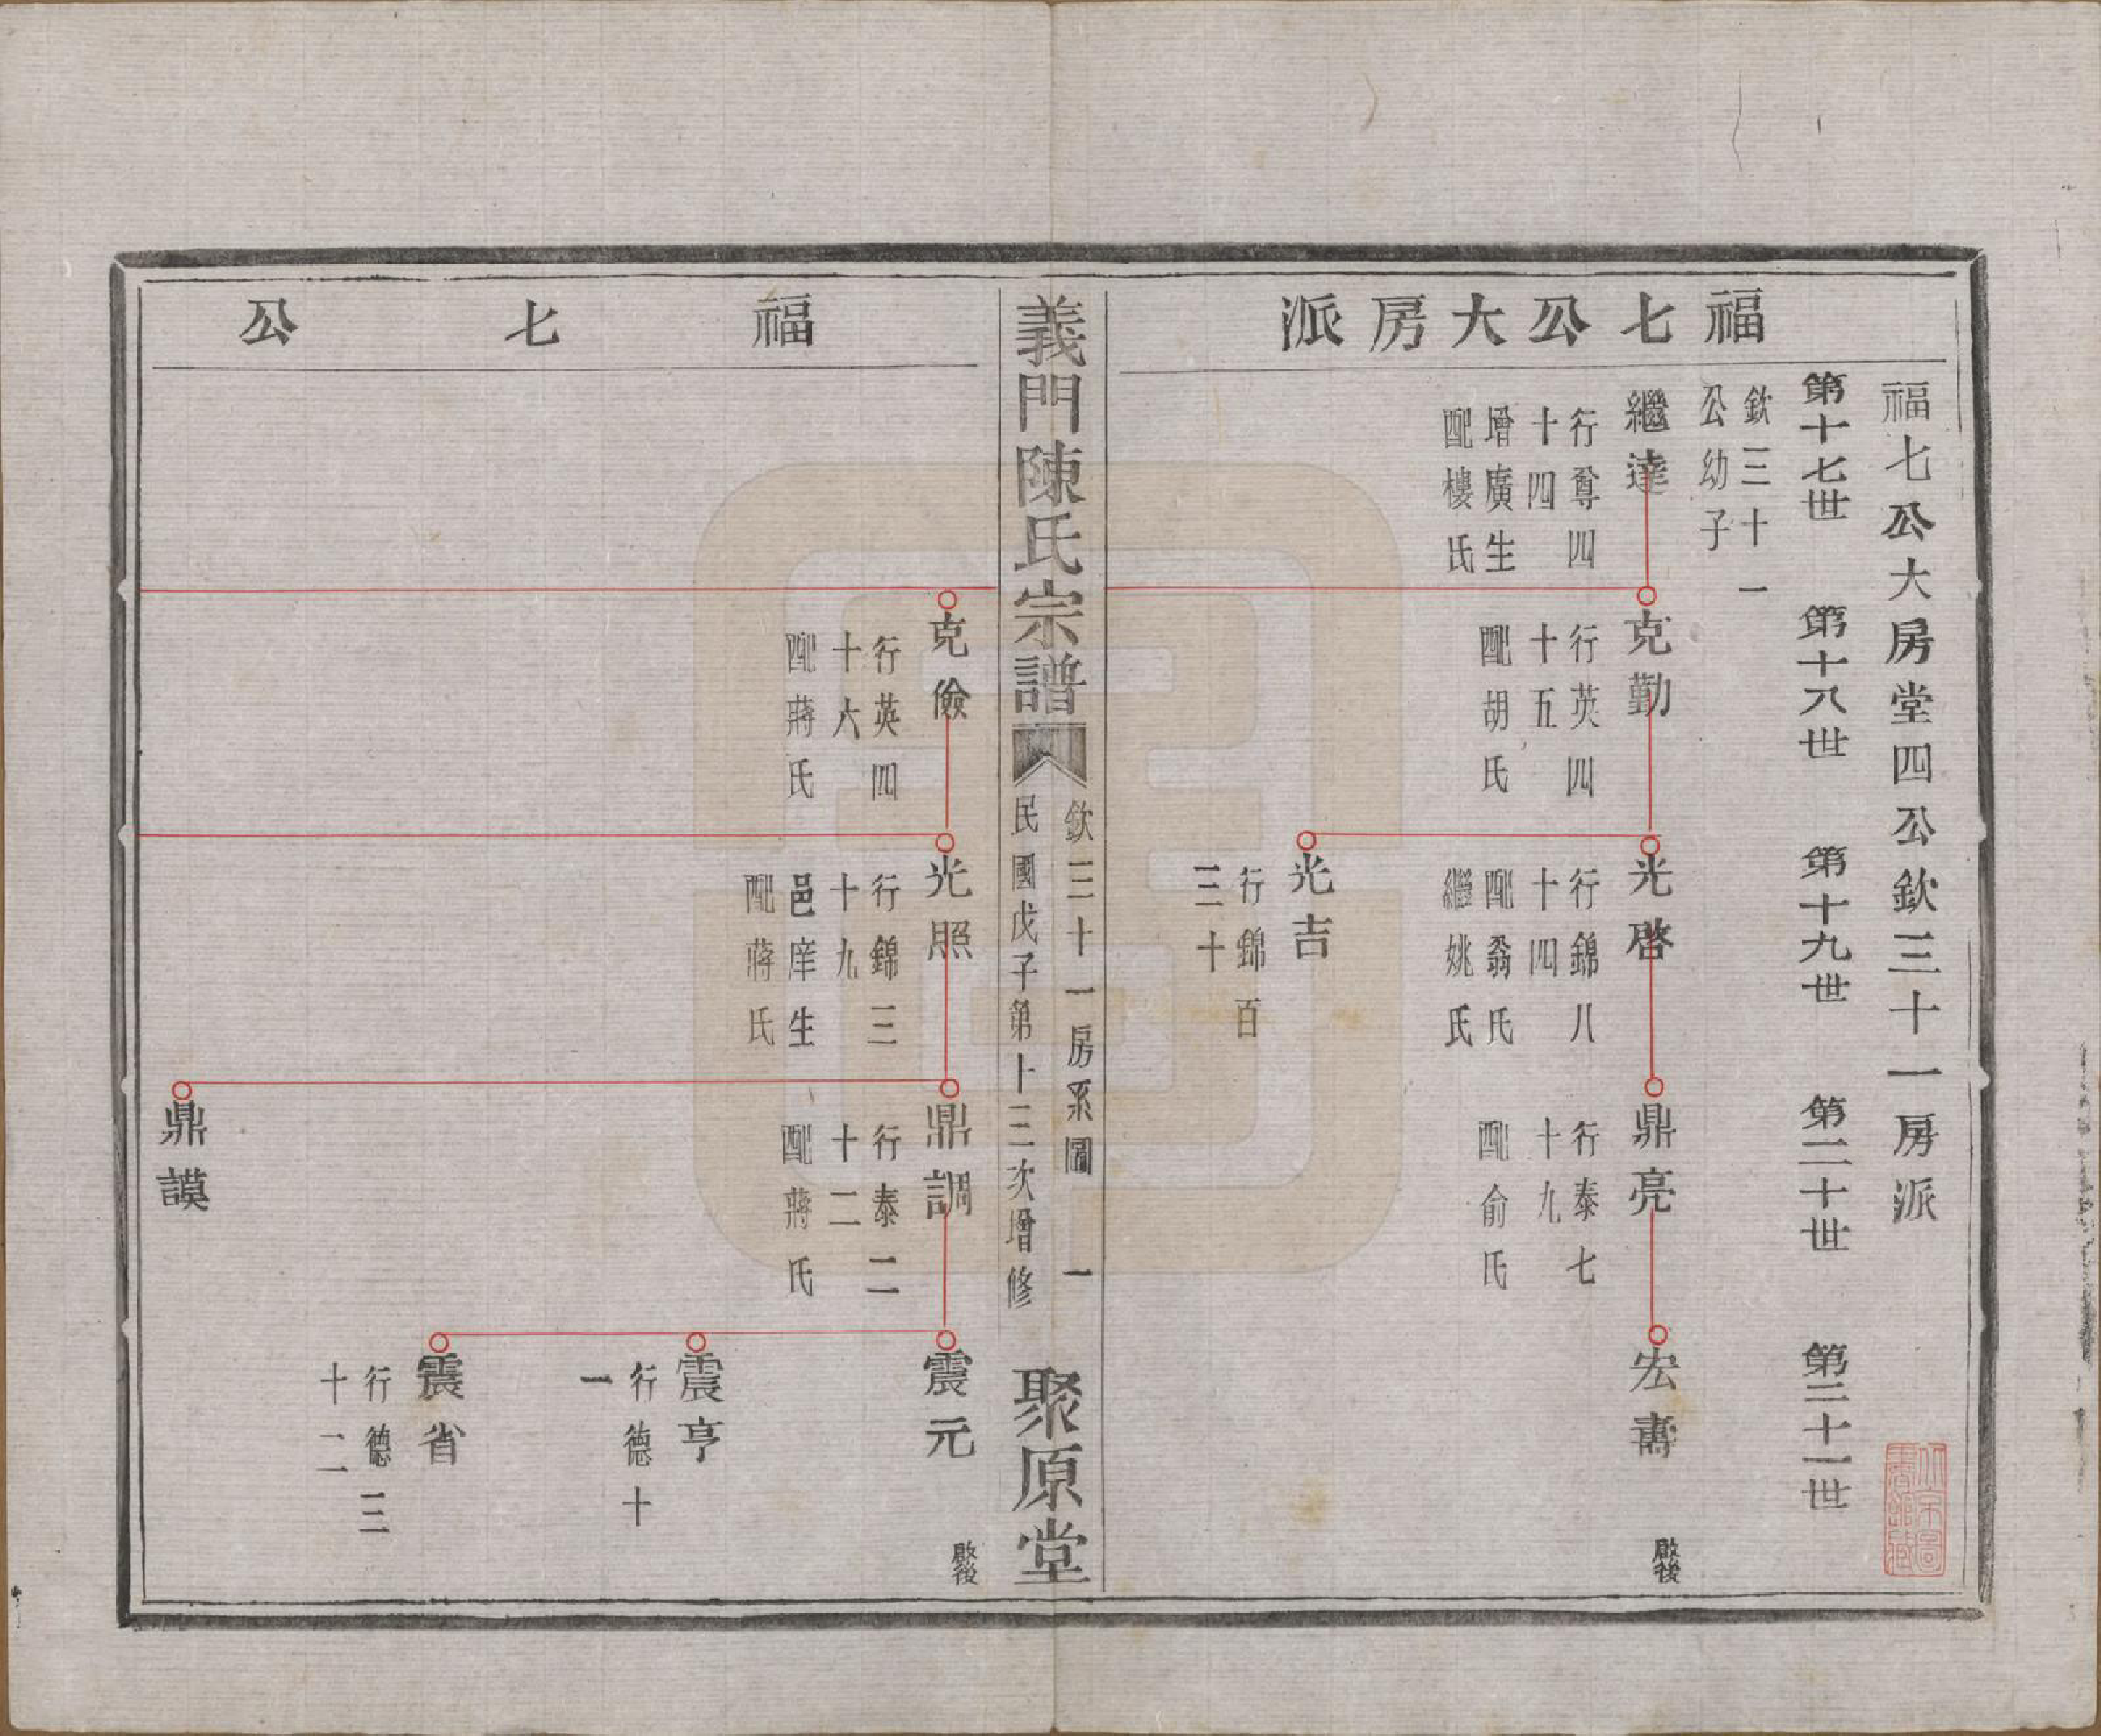 福七公大房派
福七公大房堂四公欽三十一房派
第十七世
第十八世
第十九世
第二十世
第二十一世
欽三十一
公幼子
繼達
行尊四
十四
增廣生
配樓氏
克勤
行英四
十五
配胡氏
光啓
行錦八
十四
配翁氏
繼姚氏
光吉
行錦百
三十
鼎亮
行泰七
十九
配俞氏
宏壽
啟後
義門陳氏宗譜
欽三十一房系圖
一
民國戊子第十三次增修
聚原堂
福七公
克儉
行英四
十六
配蔣氏
光照
行錦三
十九
邑庠生
配蔣氏
鼎調
行泰二
十二
配蔣氏
鼎謨
震元
啟後
震亨
行德十
一
震省
行德三
十二